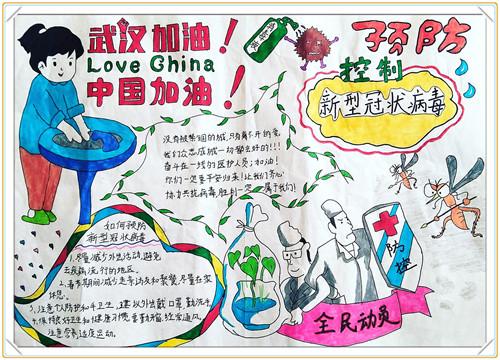 武汉加油!
Love China
中国加油!
预防
控制
新型冠状病毒
没有被禁锢的城,只有离不开的爱,
我们众志成城一切都会好的!!!
奋斗在一线的医护人员:加油!
你们一定要平安归来!让我们齐心
协力共抗病毒胜利一定属于我们!
如何预防
新型冠状病毒
1.尽量减少外出活动,避免
去疾病流行的地区。
2.春节期间减少走亲访友和聚餐,尽量在家
休息。
3.注意个人防护和手卫生,建议外出戴口罩,勤洗手
4.保持良好卫生和健康习惯,经常通风,
注意营养,适度运动。
防控
全民动员